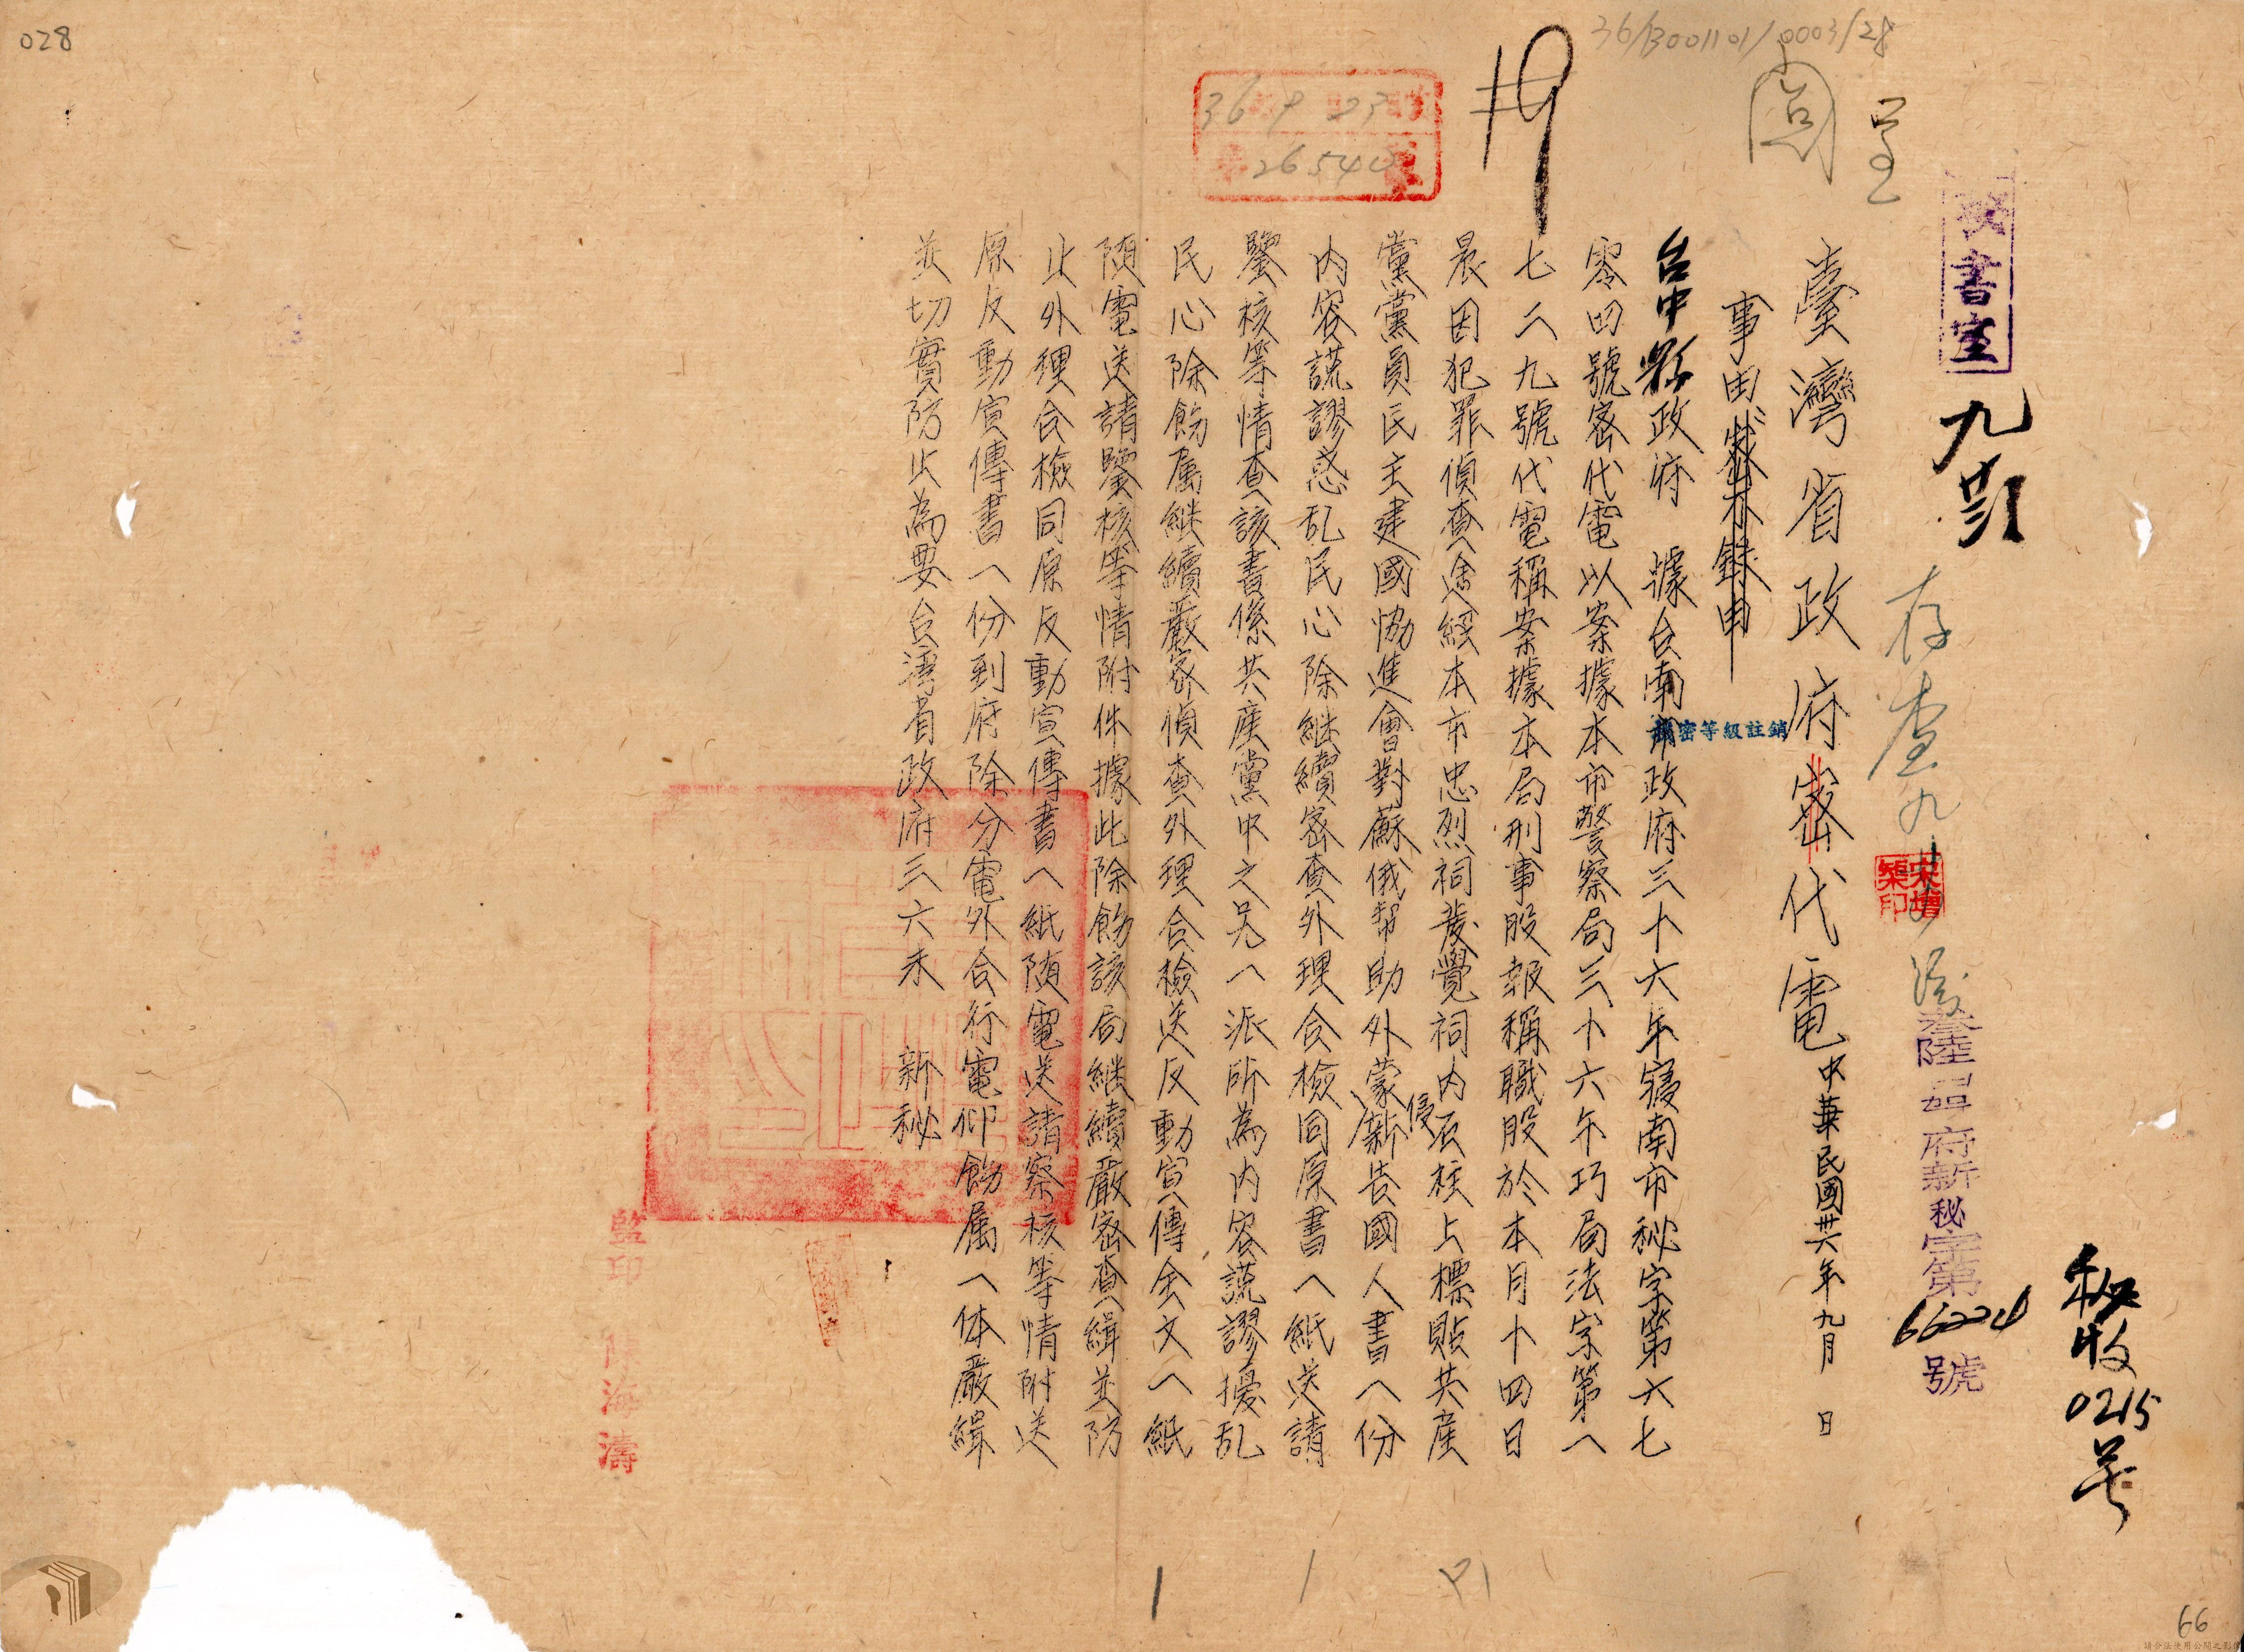 028
36/B001101/0003/28
19
秘書室
秘收0215號
存查
叁陸 府新秘字第66224號
臺灣省政府密代電 中華民國卅六年九月 日
機密等級註銷
事由
台中縣政府 據台南市政府三十六年寢南市秘字第六七
零四號密代電以案據本市警察局三十六年巧局法字第一
七二九號代電稱案據本局刑事股報稱職股於本月十四日
晨因犯罪偵查途經本市忠烈祠發覺祠內石柱上標貼共產
黨黨員民主建國協進會對蘇俄幫助外蒙侵新告國人書一份
內容謊謬惑乱民心除継續密查外理合檢同原書一紙送請
鑒核等情查該書係共產黨中之另一派所為內容謊謬擾乱
民心除飭属継續嚴密偵查外理合檢送反動宣傳全文一紙
随電送請鑒核等情附件據此除飭該局継續嚴密查緝並防
止外理合檢同原反動宣傳書一紙随電送請察核等情附送
原反動宣傳書一份到府除分電外合行電仰飭属一体嚴緝
並切實防止為要台灣省政府三六未 新秘
監印 陳海濤
66